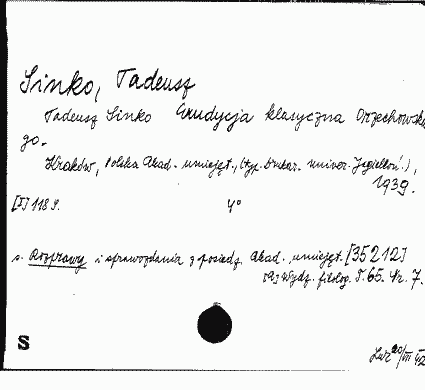 Sinko, Tadeusz
Tadeusz Sinko Erudycja klasyczna Orzechowskie
go.
Kraków, Polska Akad. umiejęt., (typ. Drukar. Uniwer. Jagielloń.),
1939.
[I] 118 s. 4°
s. Rozprawy i sprawozdania z posiedz. Akad. umiejęt. [35212]
Wydz. filolog. T. 65. Nr. 7.
S